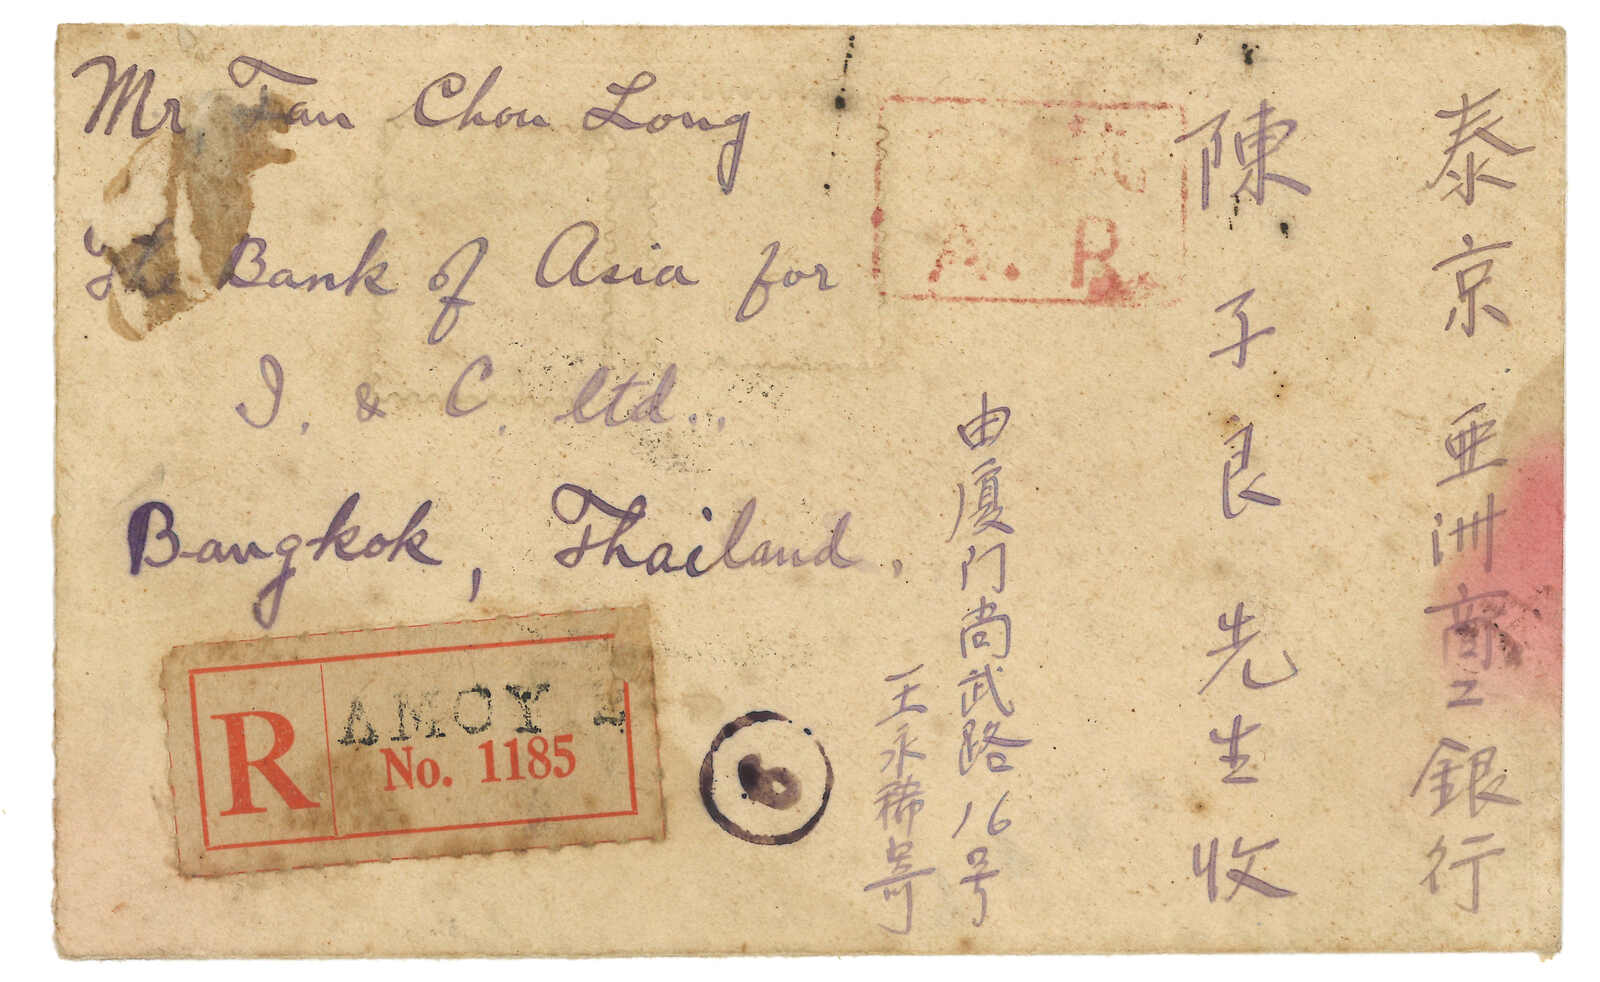 Mr. Tan Chou Long
The Bank of Asia for
I. & C. Ltd..
Bangkok, Thailand.
A. R.
泰京亜洲商工銀行
陳子良先生收
由廈门尚武路16号
王永稀寄
R
AMOY
No. 1185
6